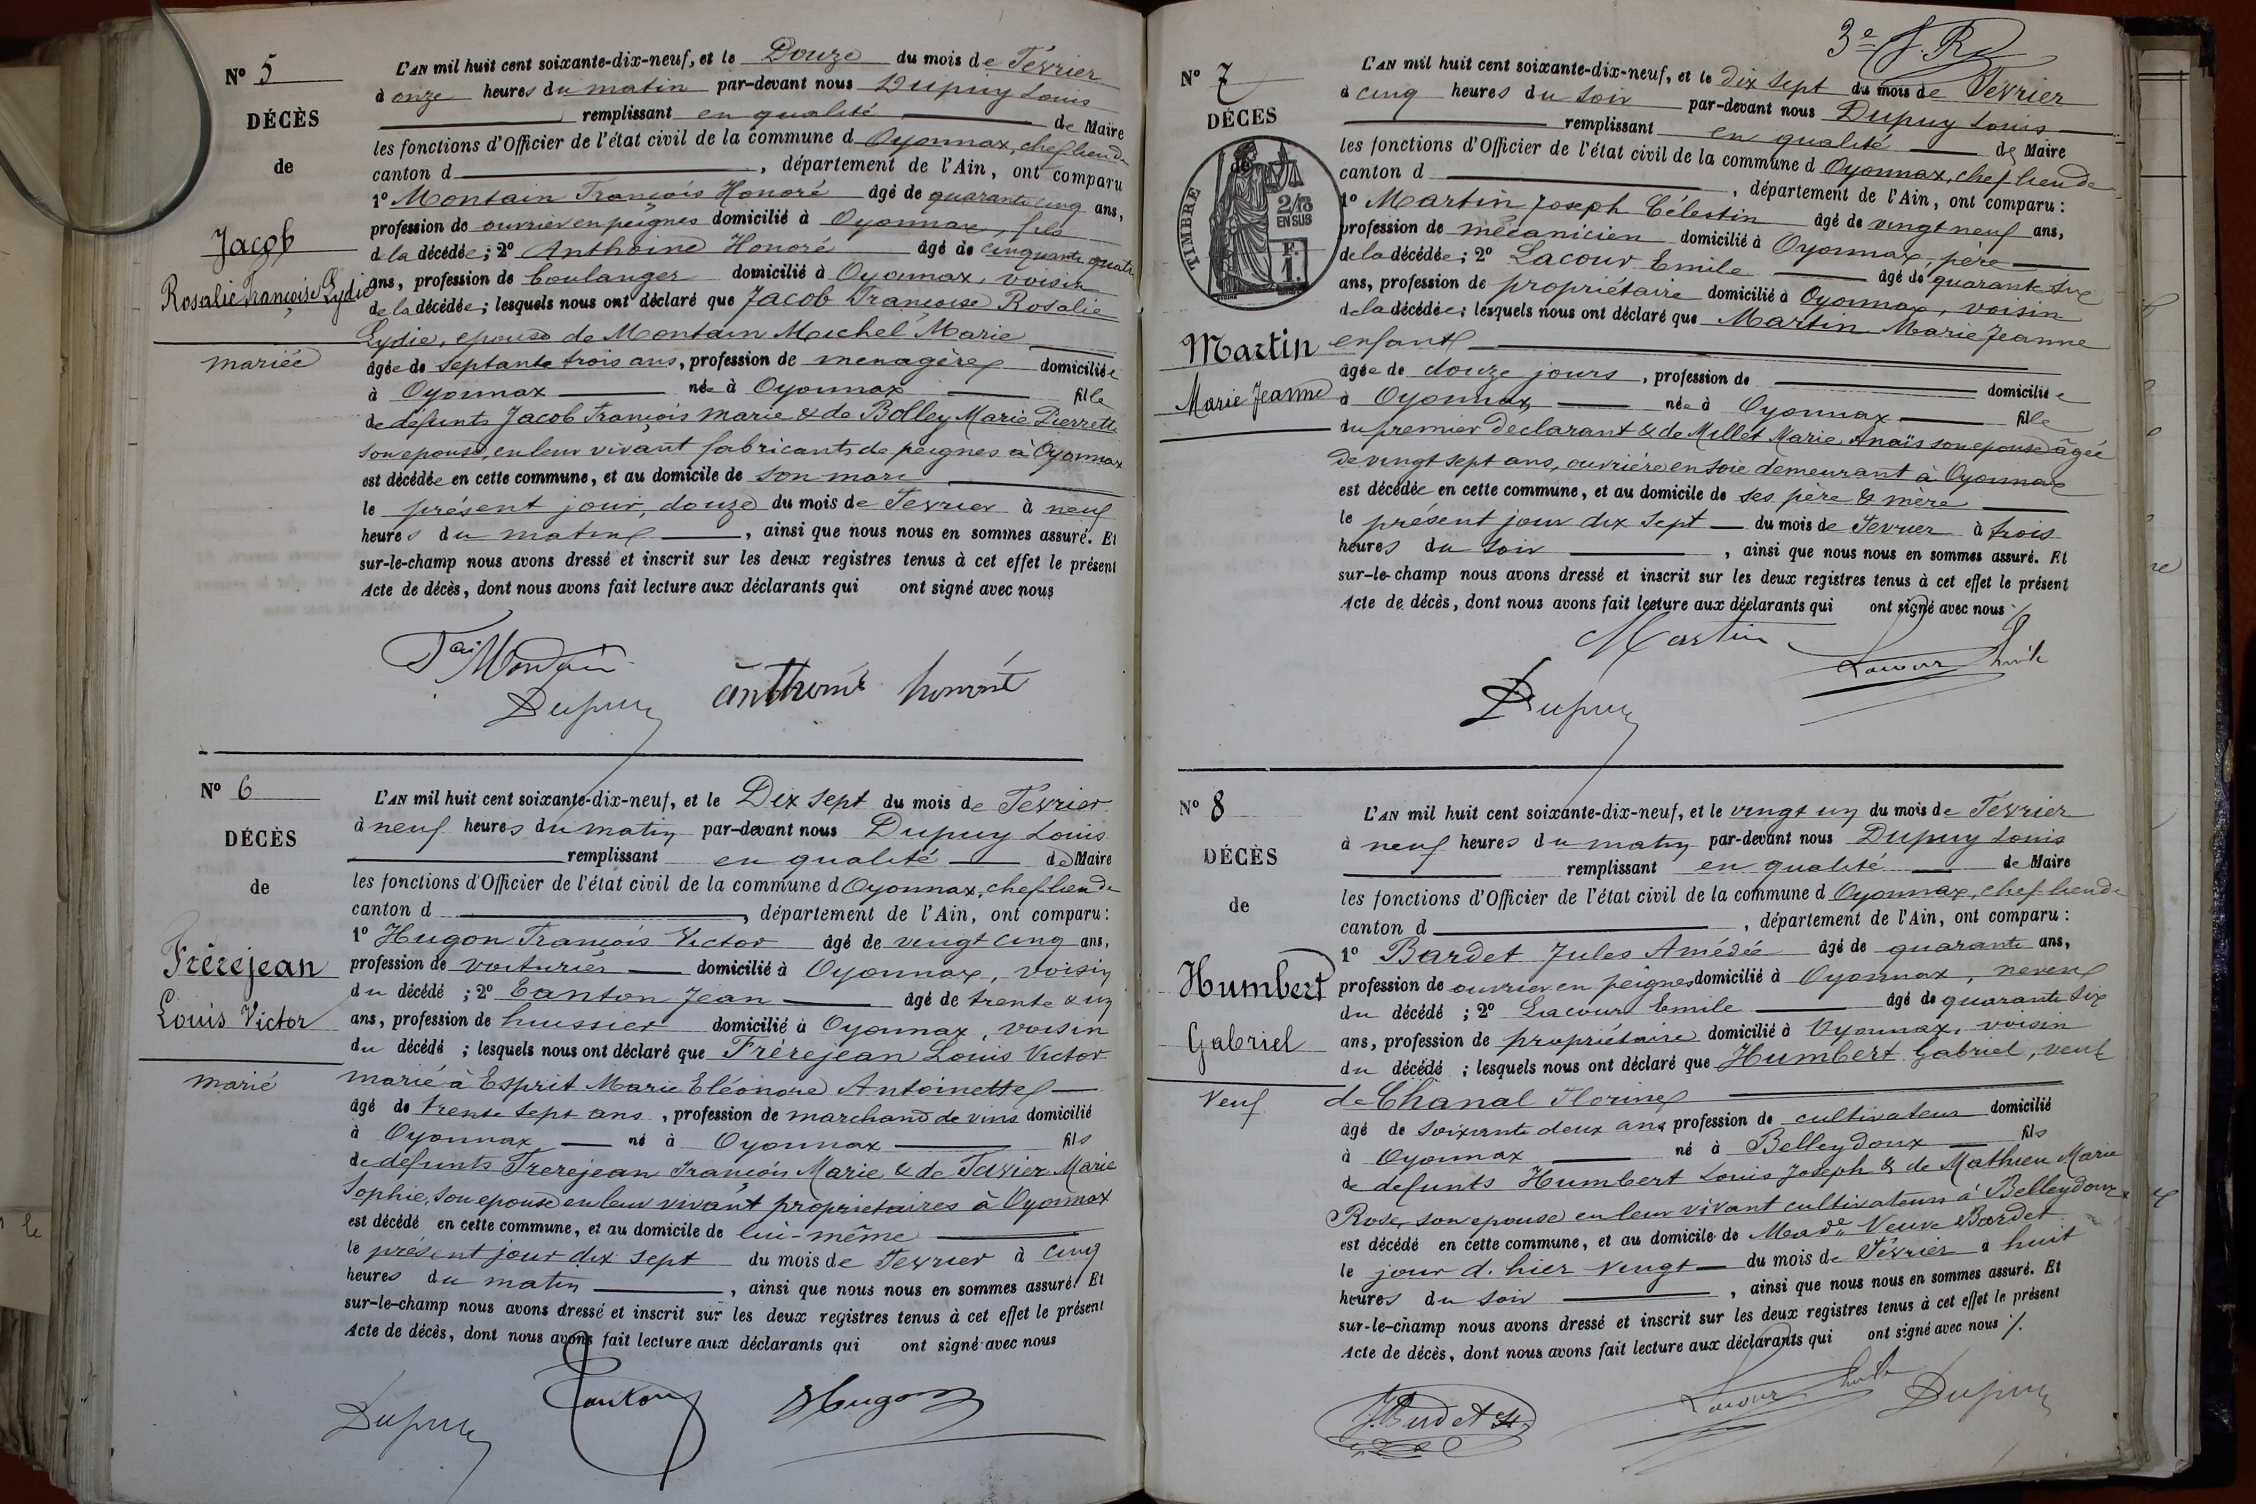 N° 5
DÉCÈS
de
Jacob
Rosalie Françoise Lydie
mariée
L'AN mil huit cent soixante-dix-neuf, et le Douze du mois de Février
à onze heures du matin par-devant nous Dupuy Louis
remplissant en qualité de Maire
les fonctions d'Officier de l'état civil de la commune d Oyonnax, chef lieu de
canton d , département de l'Ain, ont comparu
1° Montain François Honoré âgé de quarante cinq ans,
profession de ouvrier en peignes domicilié à Oyonnax, fils
d la décédée; 2° Anthoine Honoré âgé de cinquante quatre
ans, profession de boulanger domicilié à Oyonnax, voisin
de la décédée; lesquels nous ont déclaré que Jacob Françoise Rosalie
Lydie, epouse de Montain Michel Marie
âgée de septante trois ans, profession de menagère domiciliée
à Oyonnax née à Oyonnax fille
de défunts Jacob François Marie & de Bolley Marie Pierrette
son epouse, en leur vivant fabricants de peignes à Oyonnax
est décédée en cette commune, et au domicile de son mari
le présent jour, douze du mois de Fevrier à neuf
heures du matin , ainsi que nous nous en sommes assuré. Et
sur-le-champ nous avons dressé et inscrit sur les deux registres tenus à cet effet le présent
Acte de décès, dont nous avons fait lecture aux déclarants qui ont signé avec nous
Montain
Dupuy
anthoine honoré
N° 6
DÉCÈS
de
Frèrejean
Louis Victor
marié
L'AN mil huit cent soixante-dix-neuf, et le Dix sept du mois de Février
à neuf heures du matin par-devant nous Dupuy Louis
remplissant en qualité de Maire
les fonctions d'Officier de l'état civil de la commune d Oyonnax, chef lieu de
canton d , département de l'Ain, ont comparu:
1° Hugon François Victor âgé de vingt cinq ans,
profession de voiturier domicilié à Oyonnax, voisin
du décédé ; 2° Tanton Jean âgé de trente & un
ans, profession de huissier domicilié à Oyonnax, voisin
du décédé ; lesquels nous ont déclaré que Frérejean Louis Victor
marié à Esprit Marie Eléonore Antoinette
âgé de trente sept ans , profession de marchand de vins domicilié
à Oyonnax né à Oyonnax fils
de défunts Frerejean François Marie & de Tavier Marie
Sophie, son epouse en leur vivant propriétaires à Oyonnax
est décédé en cette commune, et au domicile de lui-même
le présent jour dix sept du mois de Fevrier à cinq
heures du matin , ainsi que nous nous en sommes assuré. Et
sur-le-champ nous avons dressé et inscrit sur les deux registres tenus à cet effet le présent
Acte de décès, dont nous avons fait lecture aux déclarants qui ont signé avec nous
Dupuy
Tanton
Hugon
3e
N° 7
DÉCÈS
de
TIMBRE
2/10
EN SUS
F.
1.
Martin
Marie Jeanne
L'AN mil huit cent soixante-dix-neuf, et le dix sept du mois de Fevrier
à cinq heures du soir par-devant nous Dupuy Louis
remplissant en qualité de Maire
les fonctions d'Officier de l'état civil de la commune d Oyonnax, chef lieu de
canton d , département de l'Ain, ont comparu:
1° Martin Joseph Célestin âgé de vingt neuf ans,
profession de mécanicien domicilié à Oyonnax, père
de la décédée; 2° Lacour Emile âgé de quarante six
ans, profession de propriétaire domicilié à Oyonnax, voisin
de la décédée; lesquels nous ont déclaré que Martin Marie Jeanne
enfant
âgée de douze jours , profession de domiciliée
à Oyonnax née à Oyonnax fille
du premier declarant & de Millet Marie Anaïs son epouse âgée
de vingt sept ans, ouvrière en soie demeurant à Oyonnax
est décédée en cette commune, et au domicile de ses père & mère
le présent jour dix sept du mois de Fevrier à trois
heures du soir , ainsi que nous nous en sommes assuré. Et
sur-le-champ nous avons dressé et inscrit sur les deux registres tenus à cet effet le présent
Acte de décès, dont nous avons fait lecture aux déclarants qui ont signé avec nous
Martin
Lacour Emile
Dupuy
N° 8
DÉCÈS
de
Humbert
Gabriel
Veuf
L'AN mil huit cent soixante-dix-neuf, et le vingt un du mois de Février
à neuf heures du matin par-devant nous Dupuy Louis
remplissant en qualité de Maire
les fonctions d'Officier de l'état civil de la commune d Oyonnax, chef lieu de
canton d , département de l'Ain, ont comparu:
1° Bardet Jules Amédée âgé de quarante ans,
profession de ouvrier en peignes domicilié à Oyonnax, neveu
du décédé ; 2° Lacour Emile âgé de quarante six
ans, profession de propriétaire domicilié à Oyonnax, voisin
du décédé ; lesquels nous ont déclaré que Humbert Gabriel, veuf
de Chanal Florine
âgé de soixante deux ans profession de cultivateur domicilié
à Oyonnax né à Belleydoux fils
de defunts Humbert Louis Joseph & de Mathieu Marie
Rose, son epouse en leur vivant cultivateurs à Belleydoux
est décédé en cette commune, et au domicile de Made Veuve Bardet
le jour d'hier vingt du mois de Février à huit
heures du soir , ainsi que nous nous en sommes assuré. Et
sur-le-champ nous avons dressé et inscrit sur les deux registres tenus à cet effet le présent
Acte de décès, dont nous avons fait lecture aux déclarants qui ont signé avec nous /.
J. Bardet
Lacour Emile
Dupuy